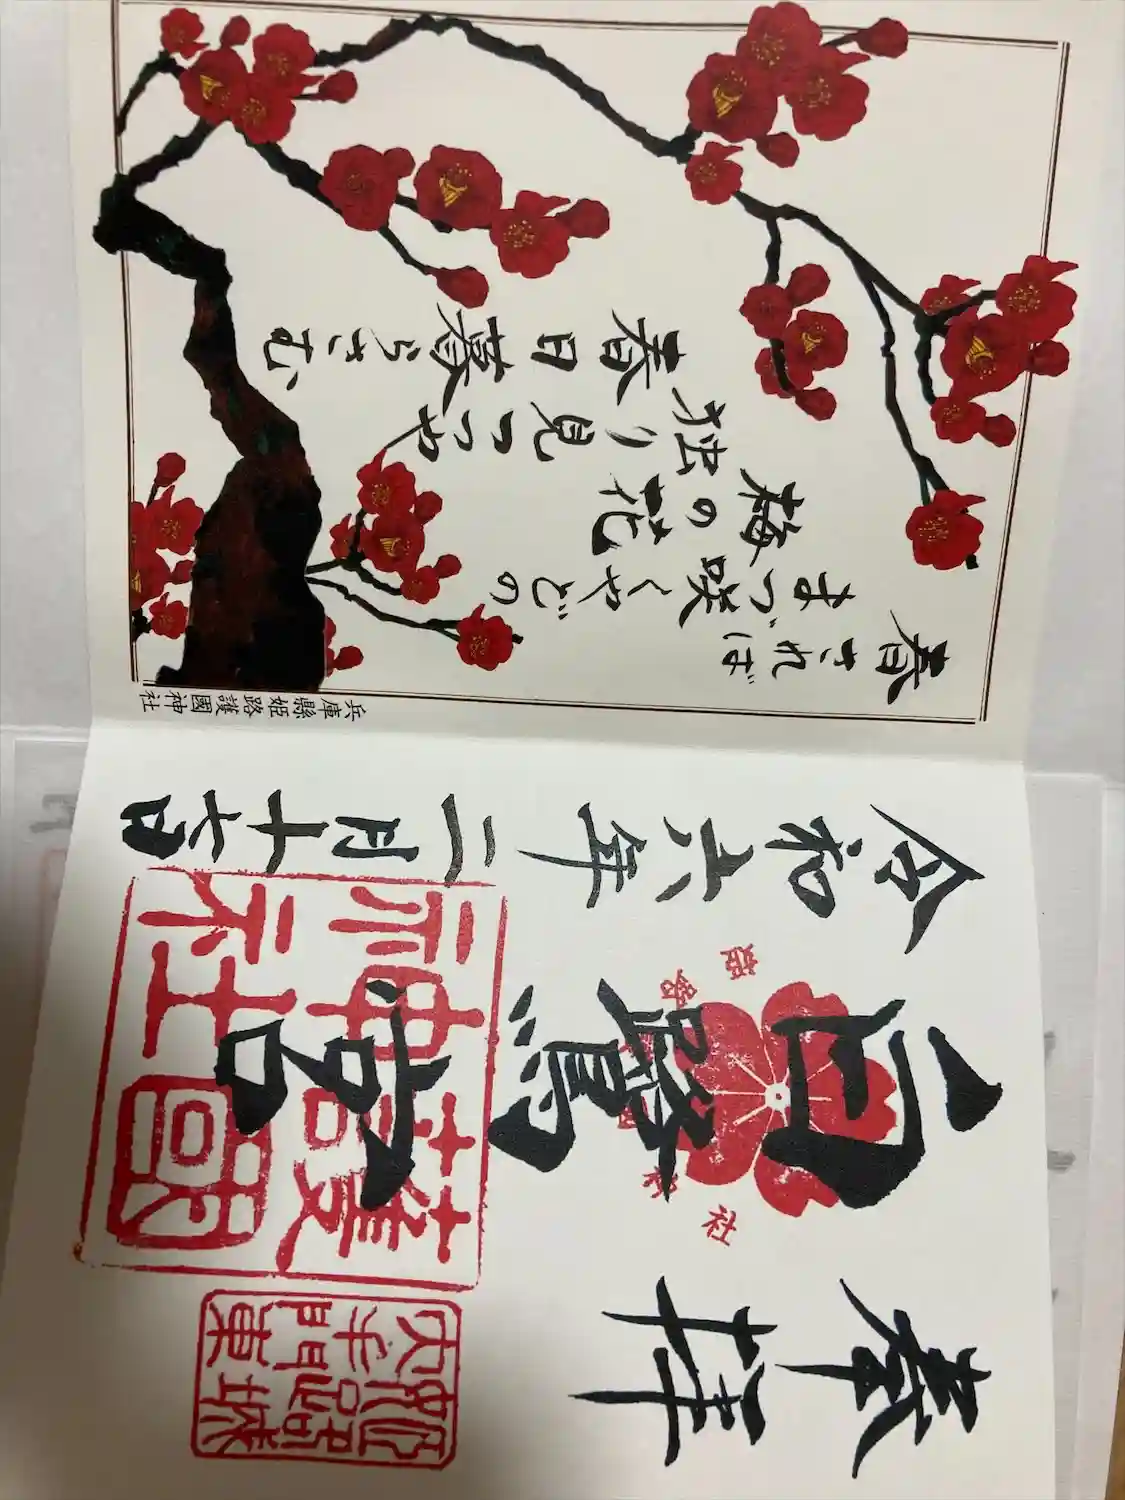 春されば
まづ咲くやどの
梅の花
独り見つつや
春日暮らさむ
兵庫縣姫路護國神社
奉拝
白鷺宮
令和六年二月十七日
護國
神社
姫路城
大手門東